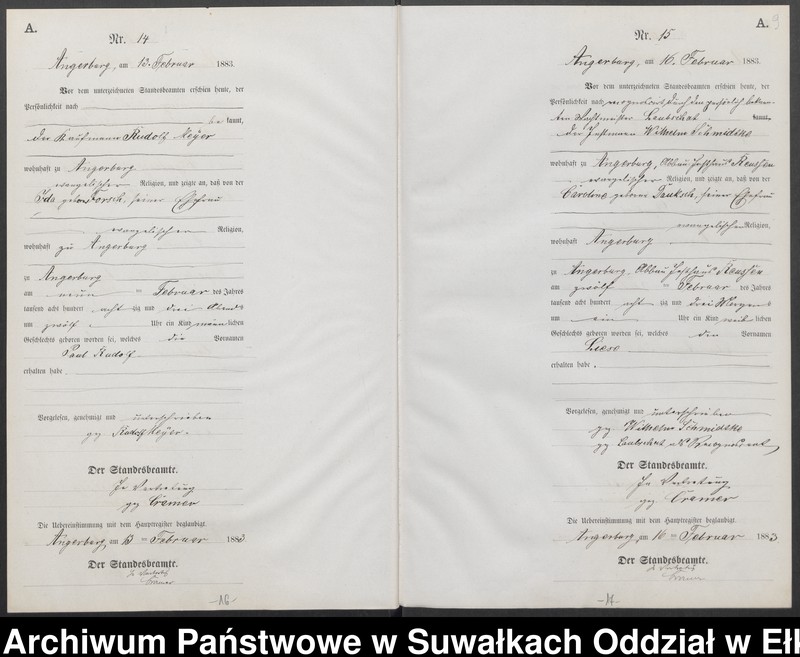 A.
Nr. 14
Angerburg, am 13. Februar 1883.
Vor dem unterzeichneten Standesbeamten erschien heute, der
Persönlichkeit nach
be kannt,
der Kaufmann Rudolf Meyer
wohnhaft zu Angerburg
evangelischer Religion, und zeigte an, daß von der
Ida geborne Torsch, seiner Ehefrau
evangelischer Religion,
wohnhaft zu Angerburg
zu Angerburg
am neun ten Februar des Jahres
tausend acht hundert acht zig und drei Abends
um zwölf Uhr ein Kind männ lichen
Geschlechts geboren worden sei, welches die Vornamen
Paul Rudolf
erhalten habe.
Vorgelesen, genehmigt und unterschrieben
gez Rudolf Meyer.
Der Standesbeamte.
In Vertretung
gez Cramer
Die Uebereinstimmung mit dem Hauptregister beglaubigt.
Angerburg, am 13 ten Februar 1883
Der Standesbeamte.
In Vertretung
Cramer
-16-
A. 9
Nr. 15
Angerburg, am 16. Februar 1883.
Vor dem unterzeichneten Standesbeamten erschien heute, der
Persönlichkeit nach recognoscirt durch den persönlich bekann-
ten Laubschat kannt,
der Wilhelm Schmidtke
wohnhaft zu Angerburg, Abbau
evangelischer Religion, und zeigte an, daß von der
Caroline geborne seiner Ehefrau
evangelischer Religion,
wohnhaft Angerburg
zu Angerburg Abbau
am zwölf ten Februar des Jahres
tausend acht hundert acht zig und drei Morgens
um ein Uhr ein Kind weib lichen
Geschlechts geboren worden sei, welches den Vornamen
Luese
erhalten habe.
Vorgelesen, genehmigt und unterschrieben
gez Wilhelm Schmidtke
gez Laubschat als Recognoscent
Der Standesbeamte.
In Vertretung
gez Cramer
Die Uebereinstimmung mit dem Hauptregister beglaubigt.
Angerburg, am 16 ten Februar 1883
Der Standesbeamte.
In Vertretung
Cramer
-17-
Archiwum Państwowe w Suwałkach Oddział w Ełk